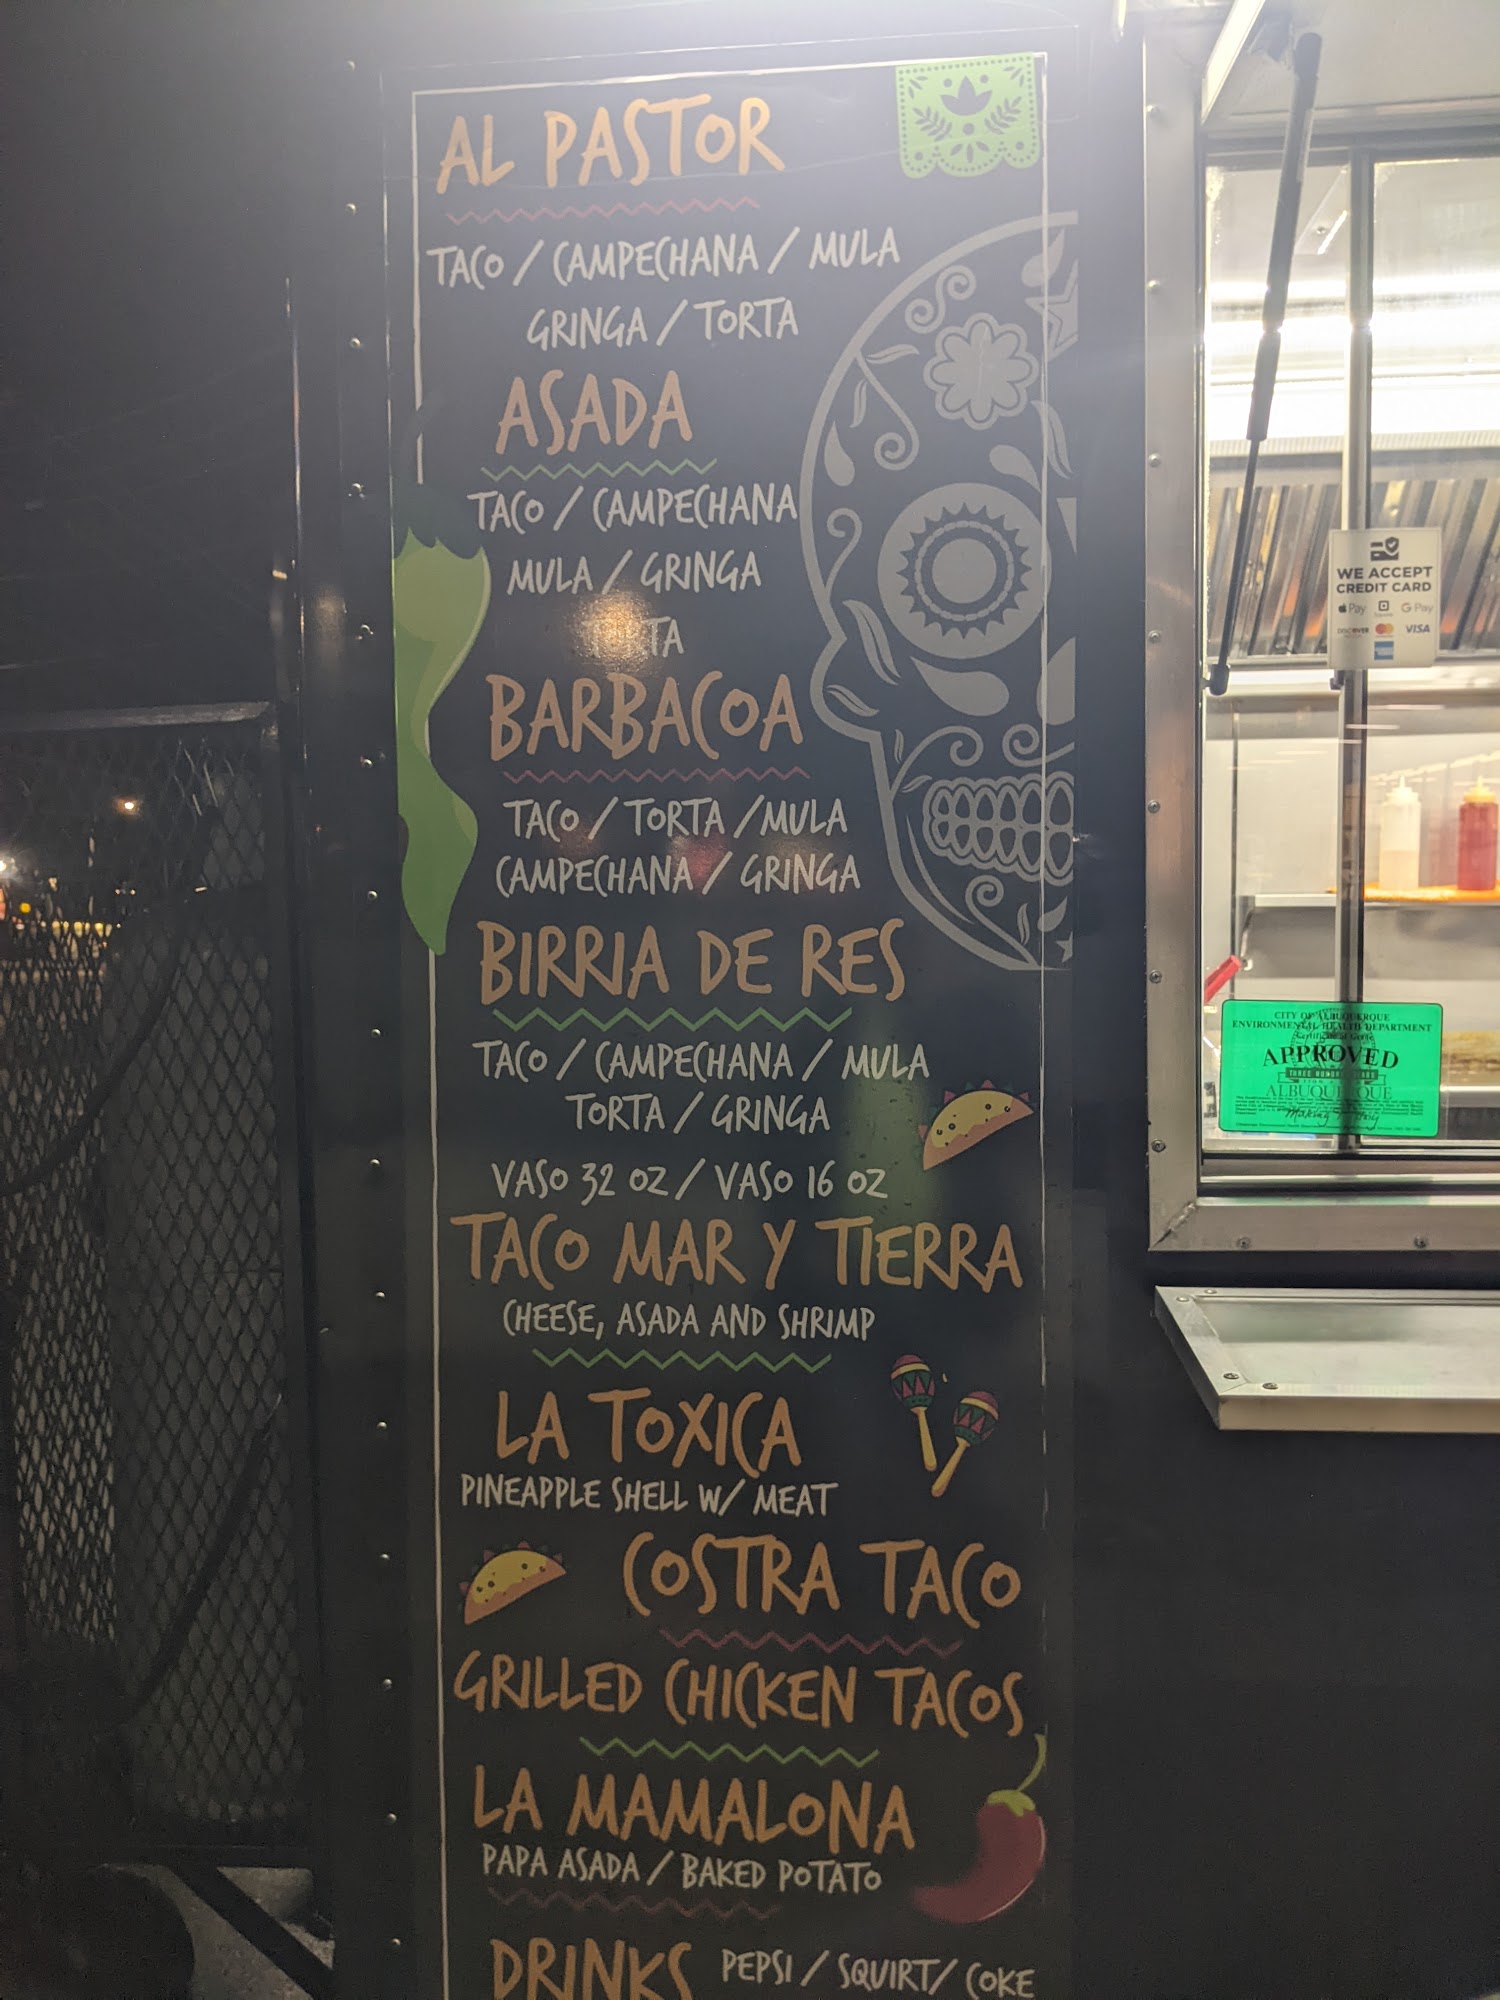 AL PASTOR
TACO / CAMPECHANA / MULA
GRINGA / TORTA
ASADA
TACO / CAMPECHANA
MULA / GRINGA
TA
BARBACOA
TACO / TORTA / MULA
CAMPECHANA / GRINGA
BIRRIA DE RES
TACO / CAMPECHANA / MULA
TORTA / GRINGA
VASO 32 OZ / VASO 16 OZ
TACO MAR Y TIERRA
CHEESE, ASADA AND SHRIMP
LA TOXICA
PINEAPPLE SHELL W/ MEAT
COSTRA TACO
GRILLED CHICKEN TACOS
LA MAMALONA
PAPA ASADA / BAKED POTATO
DRINKS PEPSI / SQUIRT / COKE
WE ACCEPT
CREDIT CARD
Pay Square G Pay
DISCOVER VISA
CITY OF ALBUQUERQUE
ENVIRONMENTAL HEALTH DEPARTMENT
APPROVED
ALBUQUERQUE